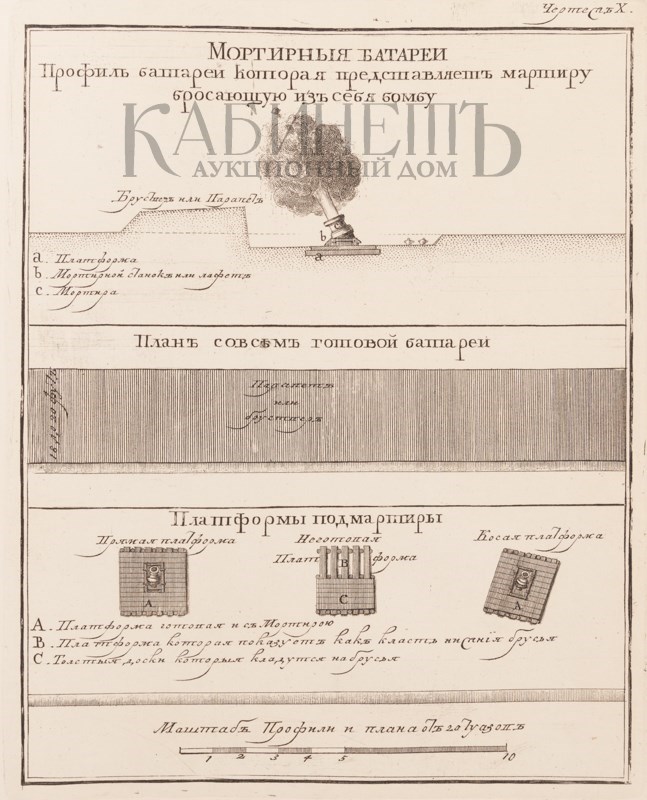 Чертежъ X.
МОРТИРНЫЯ БАТАРЕИ
Профиль батареи которая представляетъ мартиру
бросающую изъ себя бомбу
КАБИНЕТЪ
АУКЦИОННЫЙ ДОМ
Брустверъ или Парапетъ
c
b
a
a. Платформа
b. Мортирной станокъ или лафетъ
c. Мортира
Планъ совсѣмъ готовой батареи
Парапетъ
или
брустверъ
Платформы под мартиры
Прямая платформа
Неготовая
Платформа
Косая платформа
A
B
C
A
A. Платформа готовая и съ Мортирою
B. Платформа которая показуетъ какъ класть нижнія брусья
C. Толстыя доски которыя кладутся на брусья
Маштабъ Профили и плана
1 2 3 4 5 10